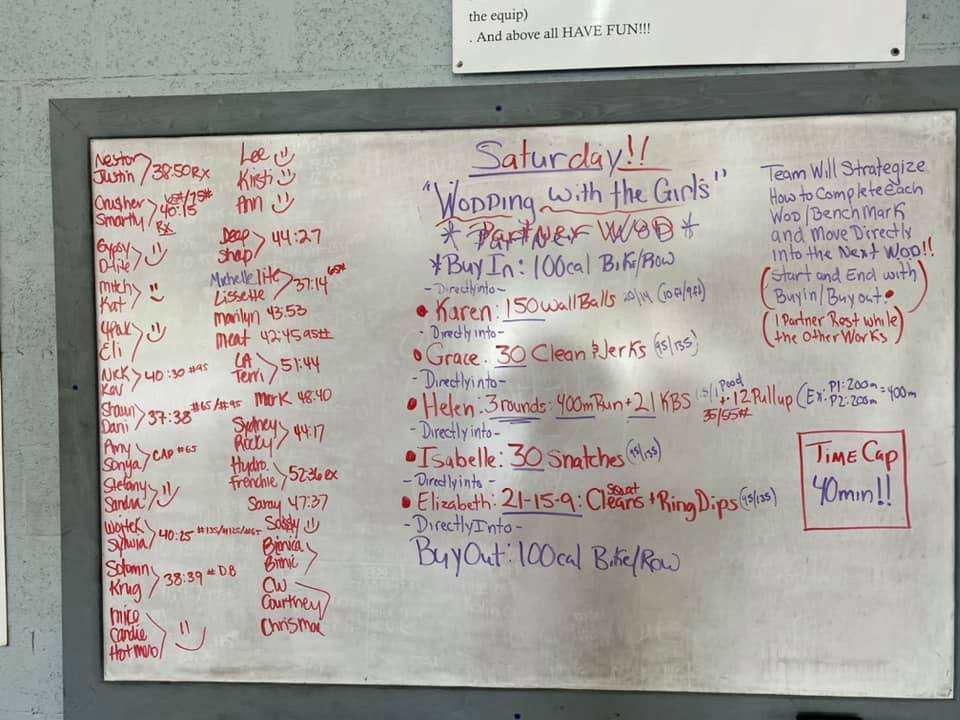 the equip)
. And above all HAVE FUN!!!
Nestor
Justin 38:50 RX
Crusher
Smartly 40:15 #75#
RX
Gypsy
D-lite
mitch
Kat
4Pak
Eli
Nick
Kev 40:30 #95
Shaun
Dani 37:38 #65/#95
Amy
Sonya CAP #65
Stefany
Sandra
Wojtek
Sylwia 40:25 #135/#125/#65
Solomn
Krug 38:39 # DB
mico
Candie
Hot mero
Lee
Kirsti
Ann
Deep
Shap 44:27
Michelle lite
Lissette 37:14 65#
marilyn 43:53
meat 42:45 95#
LA
Terri 51:44
Mark 48:40
Sydney
Rocky 44:17
Hydro.
Frenchie 52:36 RX
Saray 47:37
Bionica
Bionic
CW
Courtney
Chris Mac
Saturday!!
"Wodding with the Girls"
* Partner WOD *
*Buy In: 100cal Bike/Row
-Directly into-
• Karen: 150 Wall Balls 20/14 (10ft/9ft)
-Directly into-
• Grace. 30 Clean & Jerks (95/135)
-Directly into-
• Helen: 3 rounds: 400m Run + 21 KBS 1.5/1 Pood + 12 Pullup (Ex: P1:200m P2:200m = 400m
35/55#
-Directly into-
• Isabelle: 30 Snatches (95/135)
-Directly into-
• Elizabeth: 21-15-9: Squat Cleans + Ring Dips (95/135)
-Directly Into-
Buy Out: 100cal Bike/Row
Team Will Strategize
How to Complete Each
WOD/Benchmark
and Move Directly
into the Next WOD!!
(Start and End with
Buy in/Buy out.)
(1 Partner Rest while
the Other Works)
Time Cap
40min!!